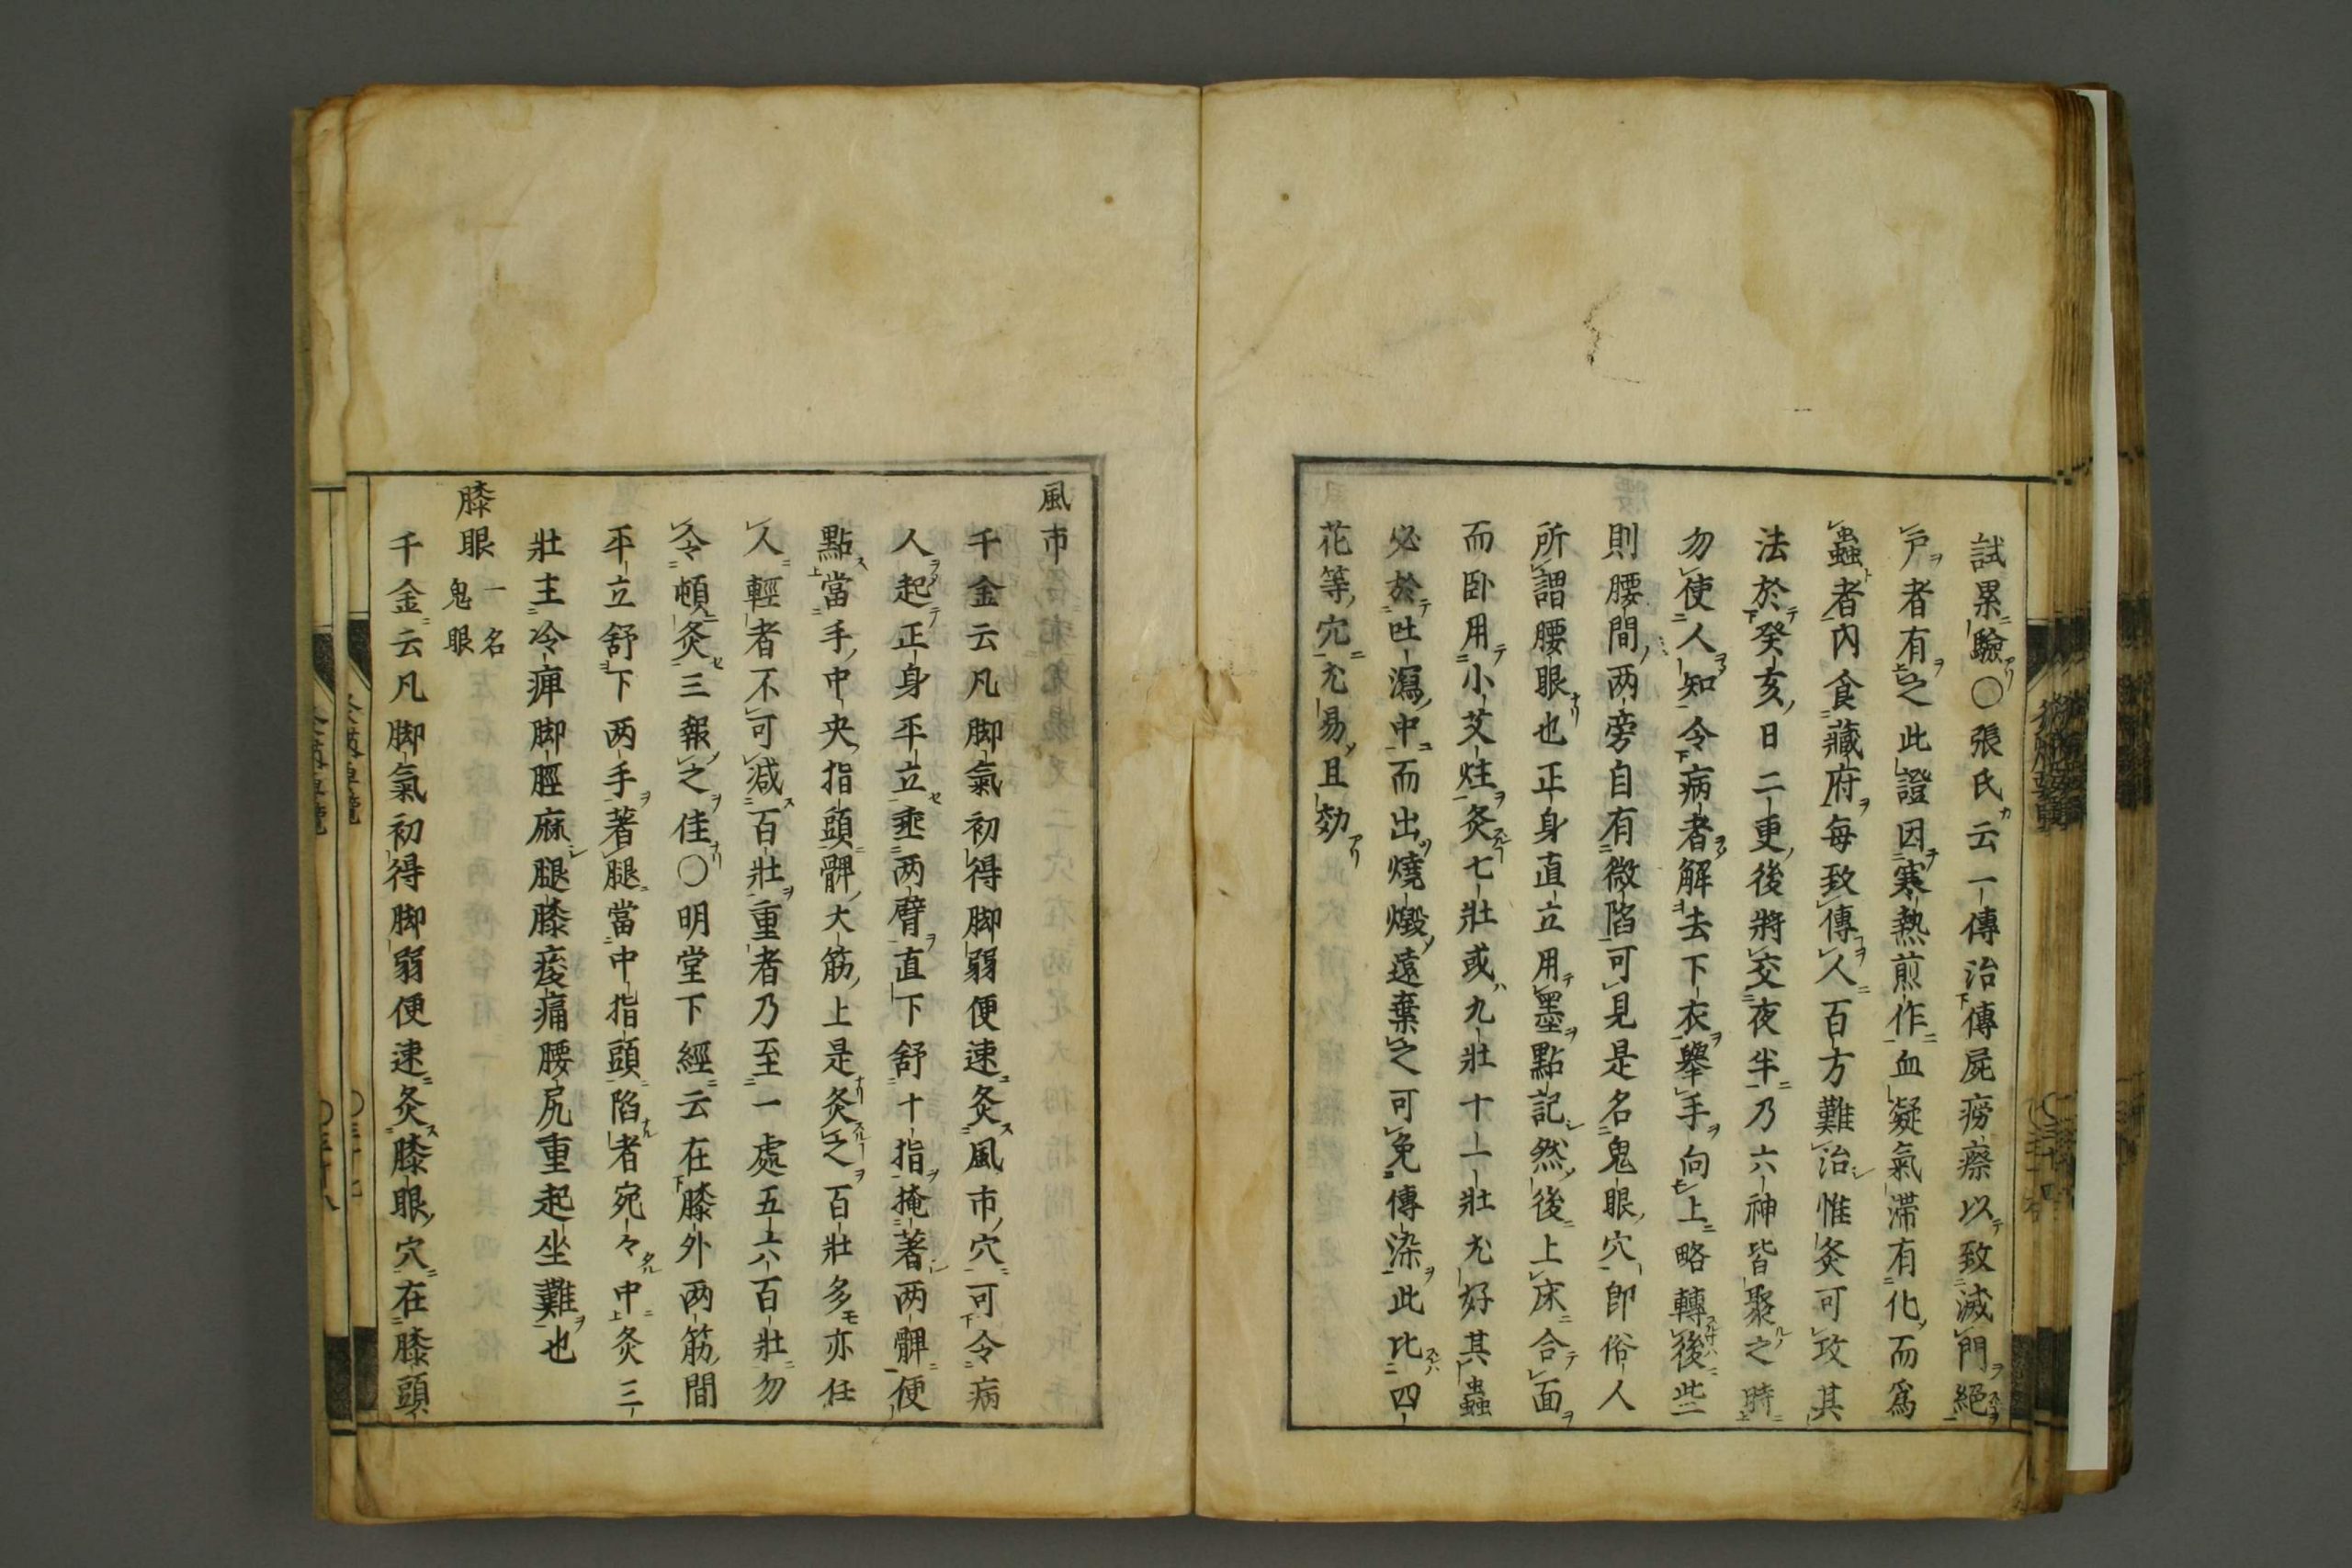 試累驗○張氏云一傳治傳屍癆瘵以致滅門絕
戸者有之此證因寒熱煎作血凝氣滯有化而爲
蟲者內食藏府每致傳人百方難治惟灸可攻其
法於癸亥日二更後將交夜半乃六神皆聚之時
勿使人知令病者解去下衣舉手向上略轉後些
則腰間两旁自有微陷可見是名鬼眼穴即俗人
所謂腰眼也正身直立用墨點記然後上床合面
而卧用小艾炷灸七壯或九壯十一壯尤好其蟲
必於吐瀉中而出燒燬遠棄之可免傳染此比四
花等穴尤易且効
風市
千金云凡脚氣初得脚弱便速灸風市穴可令病
人起正身平立垂两臂直下舒十指掩著两髀便
點當手中央指頭髀大筋上是灸之百壯多亦任
人輕者不可减百壯重者乃至一處五六百壯勿
令頓灸三報之佳○明堂下經云在膝外两筋間
平立舒下两手著腿當中指頭陷者宛々中灸三
壯主冷痺脚脛麻腿膝痠痛腰尻重起坐難也
膝眼 一名鬼眼
千金云凡脚氣初得脚弱便速灸膝眼穴在膝頭